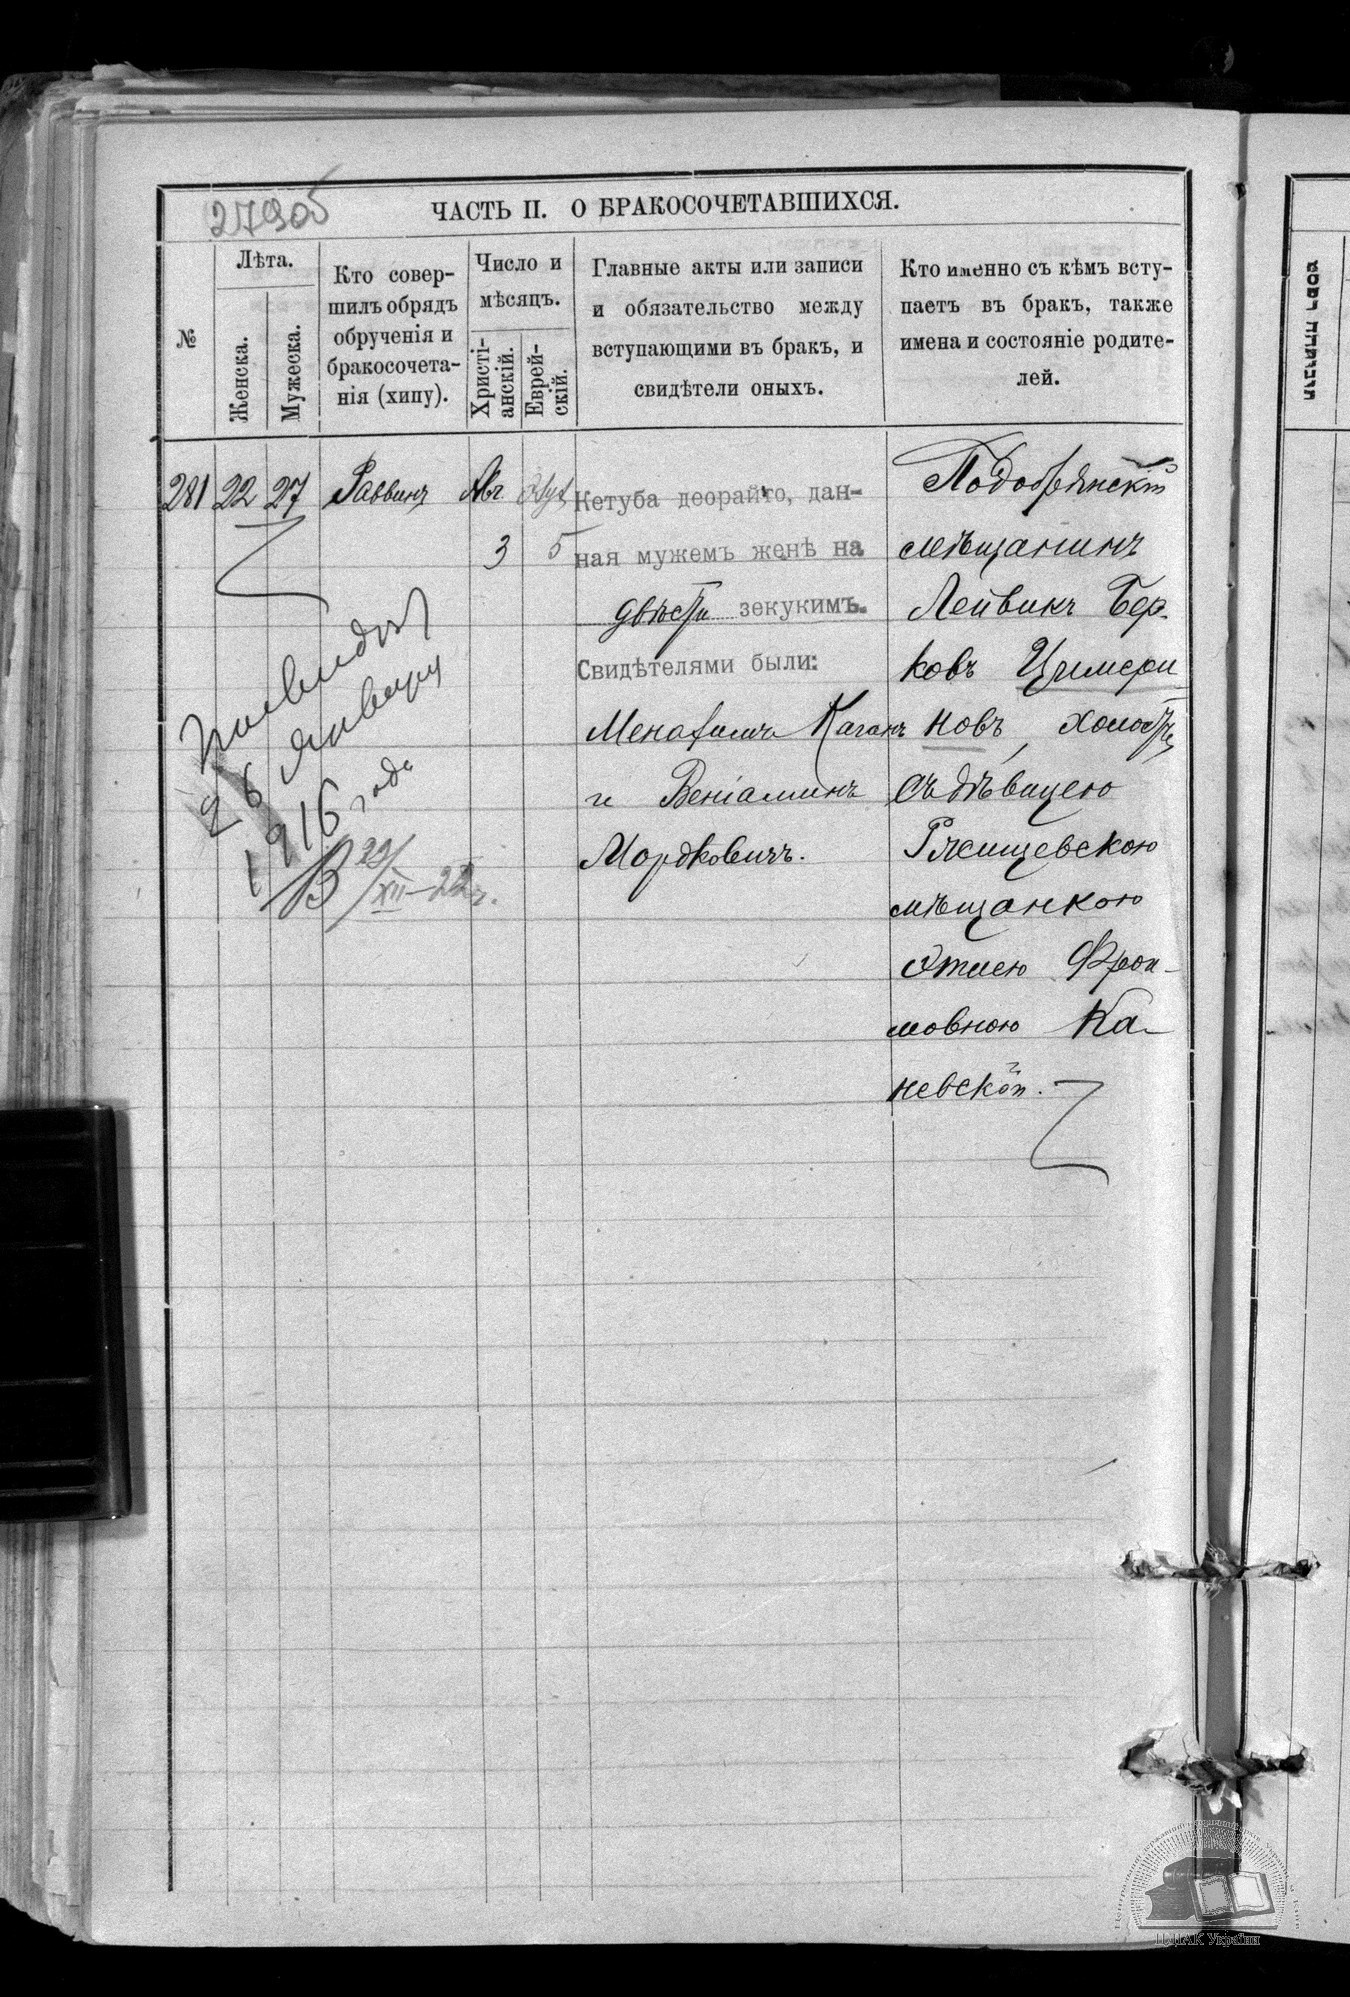 27905
ЧАСТЬ II. О БРАКОСОЧЕТАВШИХСЯ.
№
Лѣта.
Женска.
Мужеска.
Кто совер-
шилъ обрядъ
обрученія и
бракосочета-
нія (хипу).
Число и
мѣсяцъ.
Христі-
анскій.
Еврей-
скій.
Главные акты или записи
и обязательство между
вступающими въ бракъ, и
свидѣтели оныхъ.
Кто именно съ кѣмъ всту-
паетъ въ бракъ, также
имена и состояніе родите-
лей.
281 22 27 Раввинъ Авг
3 5
Кетуба деорайто, дан-
ная мужемъ женѣ на
двѣсти зекукимъ.
Свидѣтелями были:
Каганъ
и Веніаминъ
Мордковичъ.
мѣщанинъ
Лейвикъ Бер-
ковъ Цимери-
новъ, холостъ,
съ дѣвицею
Ржищевскою
мѣщанкою
Фрои-
мовною Ка-
невской.
28 января
1916 года
29/XII-22 г.
ЦДІАК України